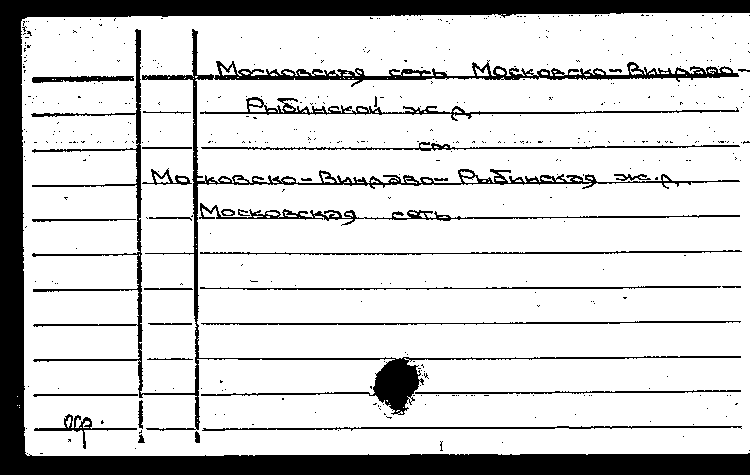 Московская сеть Московско-Виндаво-
Рыбинской ж.д.
см.
Московско-Виндаво-Рыбинская ж.д.
Московская сеть.
1